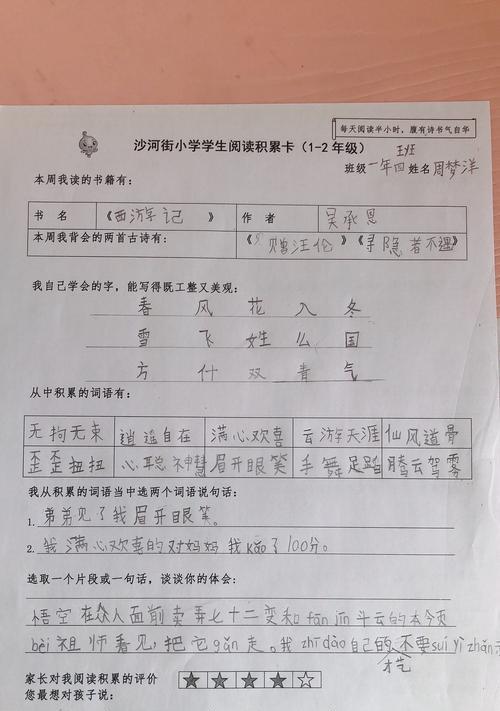 每天阅读半小时，腹有诗书气自华
沙河街小学学生阅读积累卡（1-2年级）
班级一年四班姓名周梦洋
本周我读的书籍有：
书 名 《西游记》 作 者 吴承恩
本周我背会的两首古诗有： 《赠汪伦》《寻隐者不遇》
我自己学会的字，能写得既工整又美观：
春 风 花 入 冬
雪 飞 姓 么 国
方 什 双 青 气
从中积累的词语有：
无拘无束 逍遥自在 满心欢喜 云游天涯 仙风道骨
歪歪扭扭 心聪神慧 眉开眼笑 手舞足蹈 腾云驾雾
我从积累的词语当中选两个词语说句话：
1. 弟弟见了我眉开眼笑。
2. 我满心欢喜的对妈妈我kǎo了100分。
选取一个片段或一句话，谈谈你的体会：
悟空在众人面前卖弄七十二变和fān jīn斗云的本令页
bèi祖师看见，把它gǎn走。我zhī dào自己的才艺不要suí yì zhǎn
家长对我阅读积累的评价 ★ ★ ★ ★ ☆
您最想对孩子说：